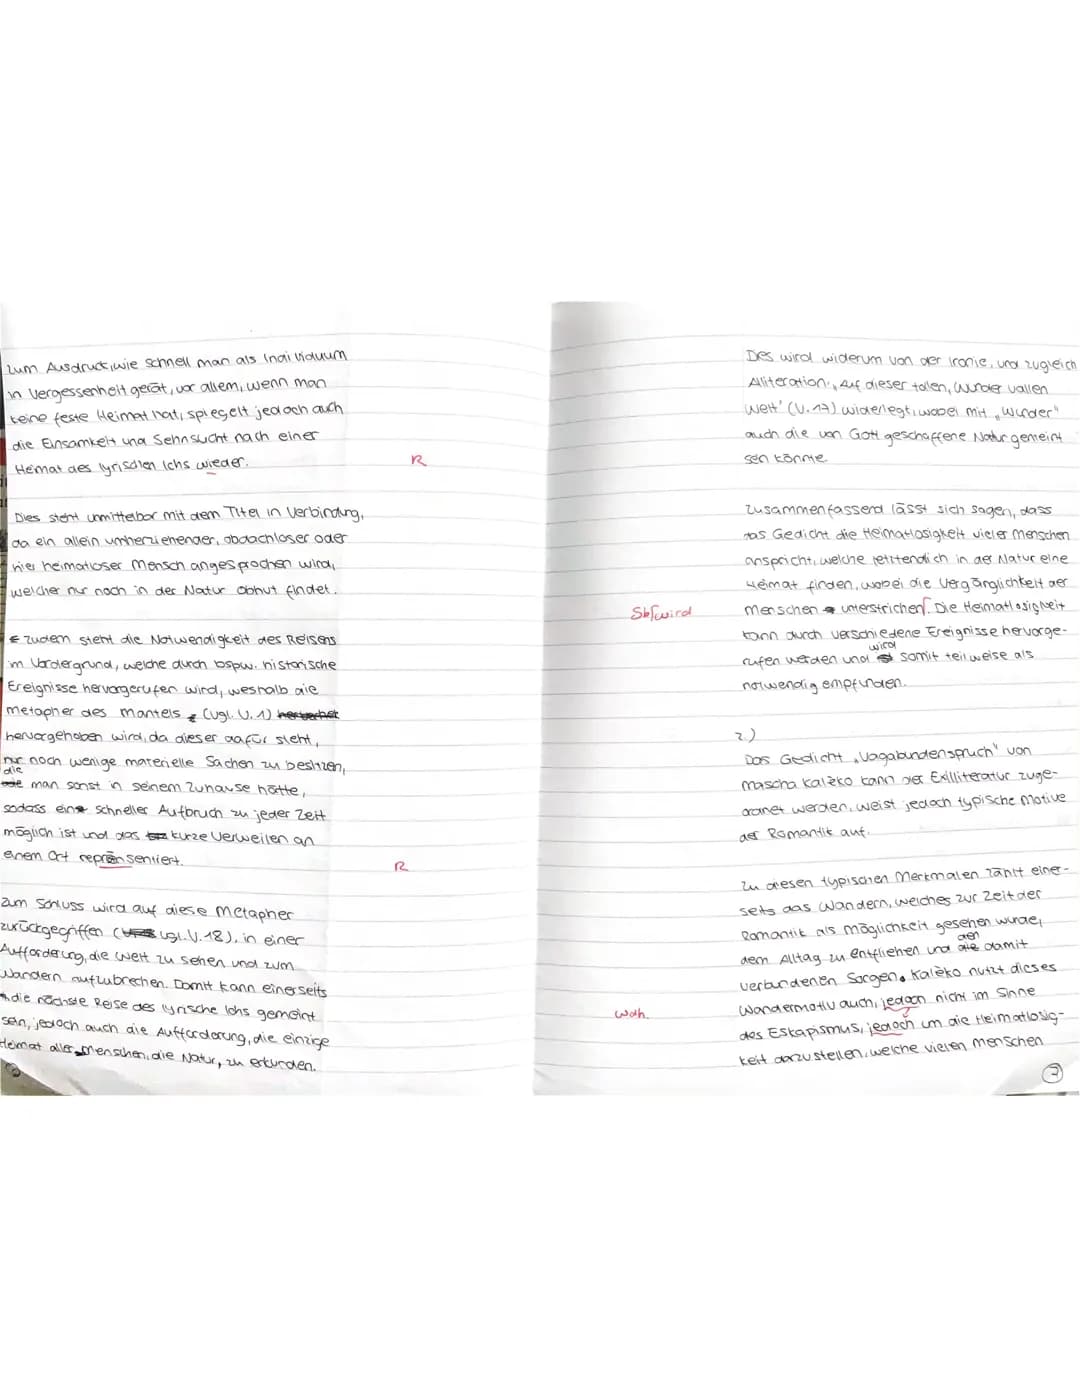 zum Ausdruck, wie schnell man als Individuum
in Vergessenheit gerät, vor allem, wenn man
keine feste Heimat hat, spiegelt jedoch auch
die Einsamkeit und Sehnsucht nach einer
Heimat des lyrischen Ichs wieder.
R
Dies steht unmittelbar mit dem Titel in Verbindung,
da ein allein umherziehender, obdachloser oder
hier heimatloser Mensch angesprochen wird,
welcher nur noch in der Natur Obhut findet.
Zudem steht die Notwendigkeit des Reisens
im Vordergrund, welche durch bspw. historische
Ereignisse hervorgerufen wird, weshalb die
Metapher des Mantels (vgl. V. 1)
hervorgehoben wird, da dieser dafür steht,
nur noch wenige materielle Sachen zu besitzen,
die man sonst in seinem Zuhause hätte,
sodass ein schneller Aufbruch zu jeder Zeit
möglich ist und das kurze Verweilen an
einem Ort repränsentiert.
R
Zum Schluss wird auf diese Metapher
zurückgegriffen (vgl. V. 18), in einer
Aufforderung, die Welt zu sehen und zum
Wandern aufzubrechen. Damit kann einerseits
die nächste Reise des lyrische Ichs gemeint
sein, jedoch auch die Aufforderung, die einzige
Heimat aller Menschen, die Natur, zu erkunden.
Dies wird widerum von der Ironie, und zugleich
Aliteration „Auf dieser tollen, Wunder vollen
Welt" (V. 17) widerlegt, wobei mit „Wunder"
auch die von Gott geschaffene Natur gemeint
sein könnte.
Zusammenfassend lässt sich sagen, dass
das Gedicht die Heimatlosigkeit vieler Menschen
anspricht, welche letztendlich in der Natur eine
Heimat finden, wobei die Vergänglichkeit der
Sb ſ wird
Menschen unterstrichen ſ. Die Heimatlosigkeit
kann durch verschiedene Ereignisse hervorge-
rufen werden und wird somit teilweise als
notwendig empfunden.
2.)
Das Gedicht „Vagabundenspruch" von
Mascha Kaléko kann der Exilliteratur zuge-
ordnet werden, weist jedoch typische Motive
der Romantik auf.
Zu diesen typischen Merkmalen zählt einer-
seits das Wandern, welches zur Zeit der
Romantik als Möglichkeit gesehen wurde,
dem Alltag zu entfliehen und den damit
verbundenen Sorgen. Kaléko nutzt dieses
Wandermotiv auch, jedoch nicht im Sinne
Wdh.
des Eskapismus, jedoch um die Heimatlosig-
keit darzustellen, welche vielen Menschen